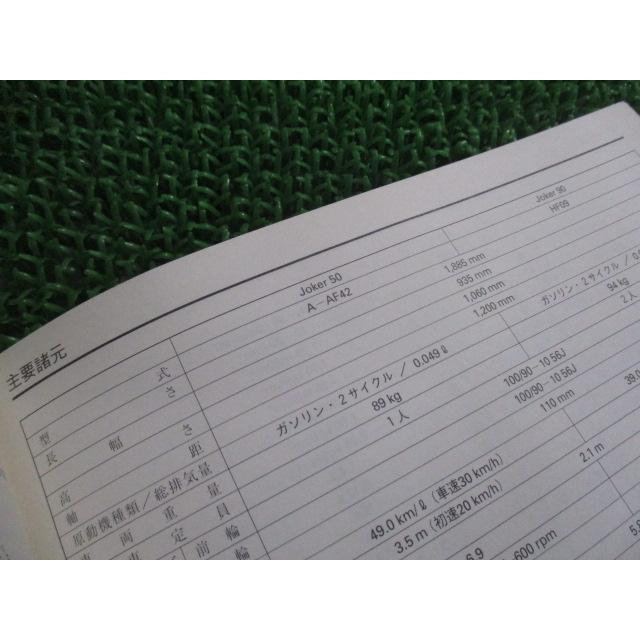 主要諸元
Joker 50 Joker 90
型 式 A-AF42 HF09
長 さ 1,885 mm
幅 935 mm
高 さ 1,060 mm
軸 距 1,200 mm
原動機種類/総排気量 ガソリン・2サイクル / 0.049 ℓ ガソリン・2サイクル / 0.0
車 両 重 量 89 kg 94 kg
定 員 1 人 2 人
前 輪 100/90-10 56J
輪 100/90-10 56J
110 mm
49.0 km/ℓ (車速30 km/h) 39.0
3.5 m (初速20 km/h)
2.1 m
6.9
-600 rpm